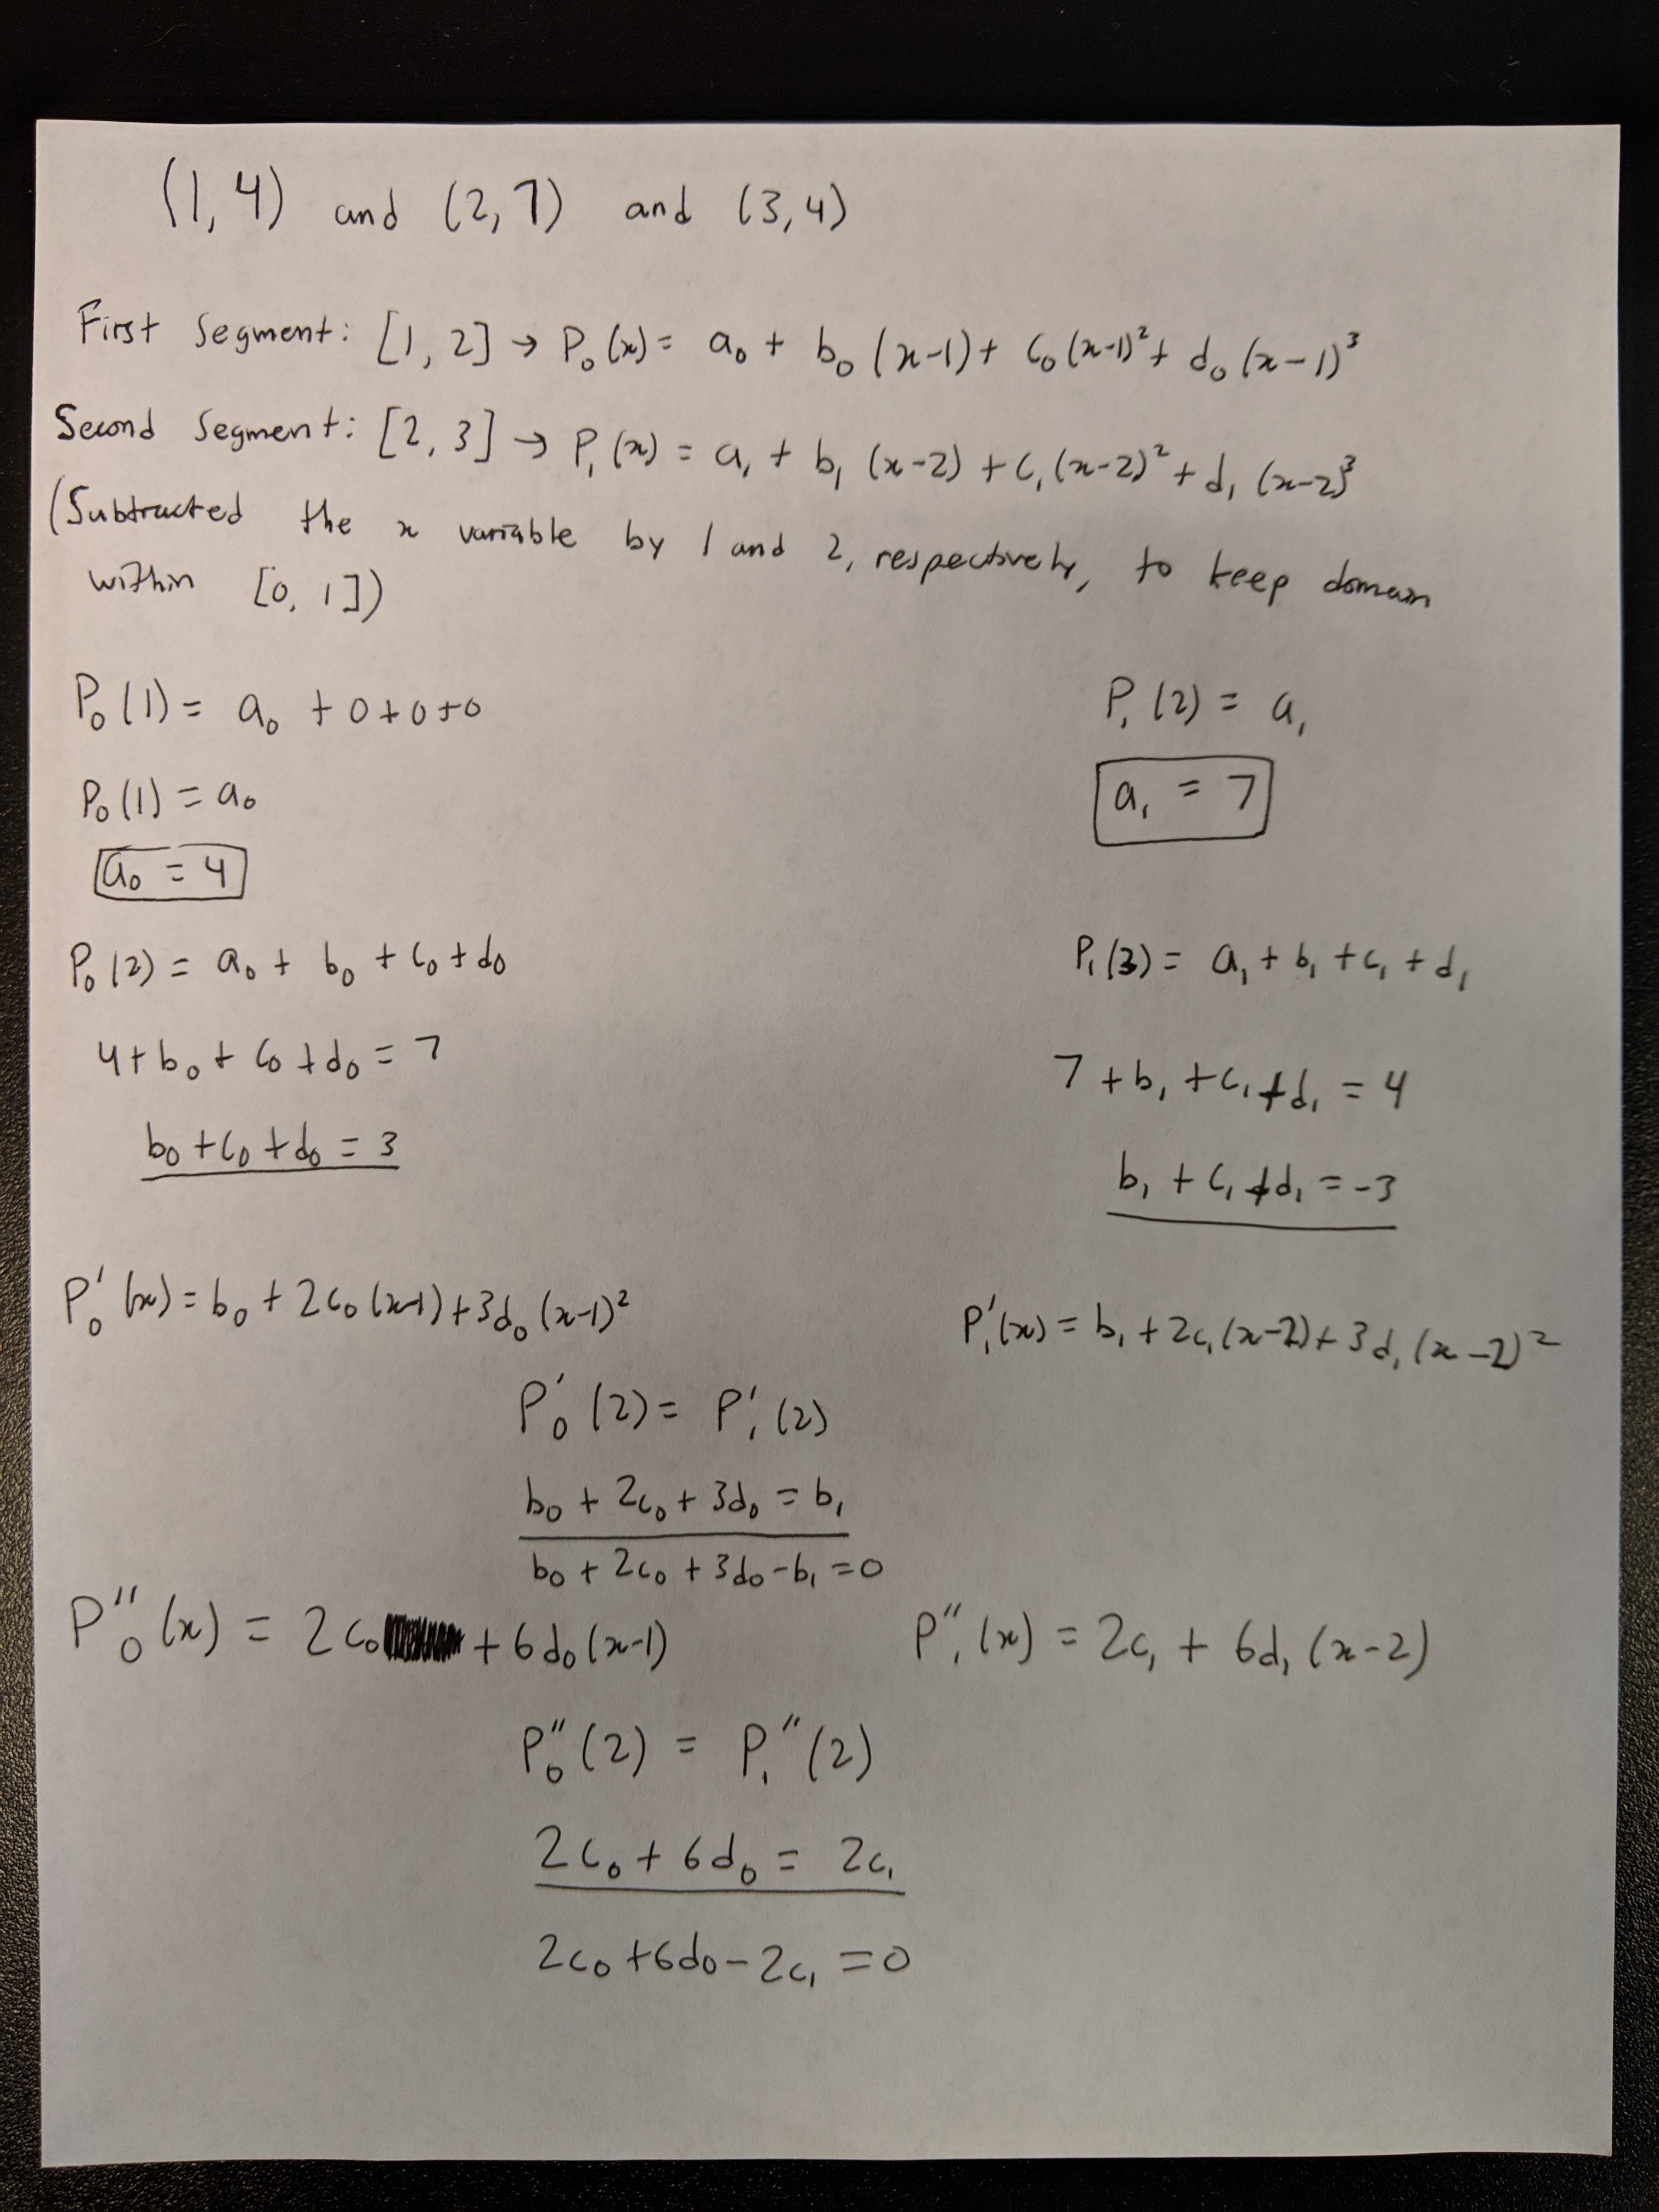 (1,4) and (2,7) and (3,4)
First Segment: [1, 2] → P₀(x) = a₀ + b₀(x-1) + c₀(x-1)² + d₀(x-1)³
Second Segment: [2, 3] → P₁(x) = a₁ + b₁(x-2) + c₁(x-2)² + d₁(x-2)³
(Subtracted the x variable by 1 and 2, respectively, to keep domain
within [0, 1])
P₀(1) = a₀ + 0+0+0
P₁(2) = a₁
P₀(1) = a₀
a₁ = 7
a₀ = 4
P₀(2) = a₀ + b₀ + c₀ + d₀
P₁(3) = a₁ + b₁ + c₁ + d₁
4 + b₀ + c₀ + d₀ = 7
7 + b₁ + c₁ + d₁ = 4
b₀ + c₀ + d₀ = 3
b₁ + c₁ + d₁ = -3
P₀'(x) = b₀ + 2c₀(x-1) + 3d₀(x-1)²
P₁'(x) = b₁ + 2c₁(x-2) + 3d₁(x-2)²
P₀'(2) = P₁'(2)
b₀ + 2c₀ + 3d₀ = b₁
b₀ + 2c₀ + 3d₀ - b₁ = 0
P₀''(x) = 2c₀ + 6d₀(x-1)
P₁''(x) = 2c₁ + 6d₁(x-2)
P₀''(2) = P₁''(2)
2c₀ + 6d₀ = 2c₁
2c₀ + 6d₀ - 2c₁ = 0